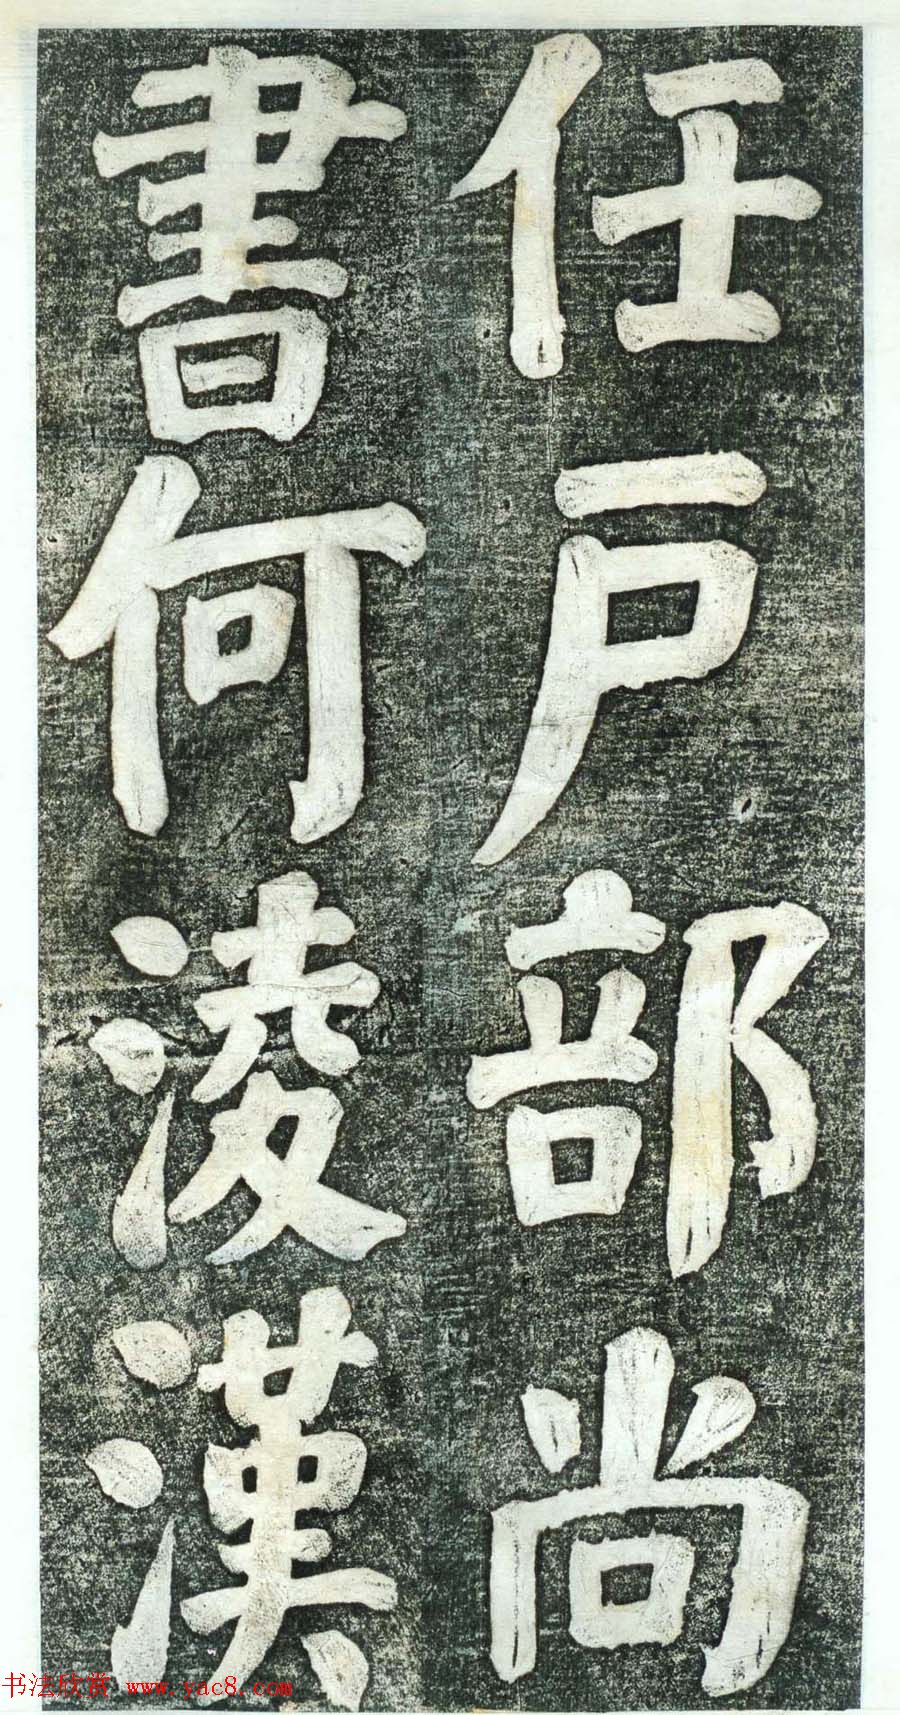 任戶部尚
書何淩漢
书法欣赏 www.yac8.com